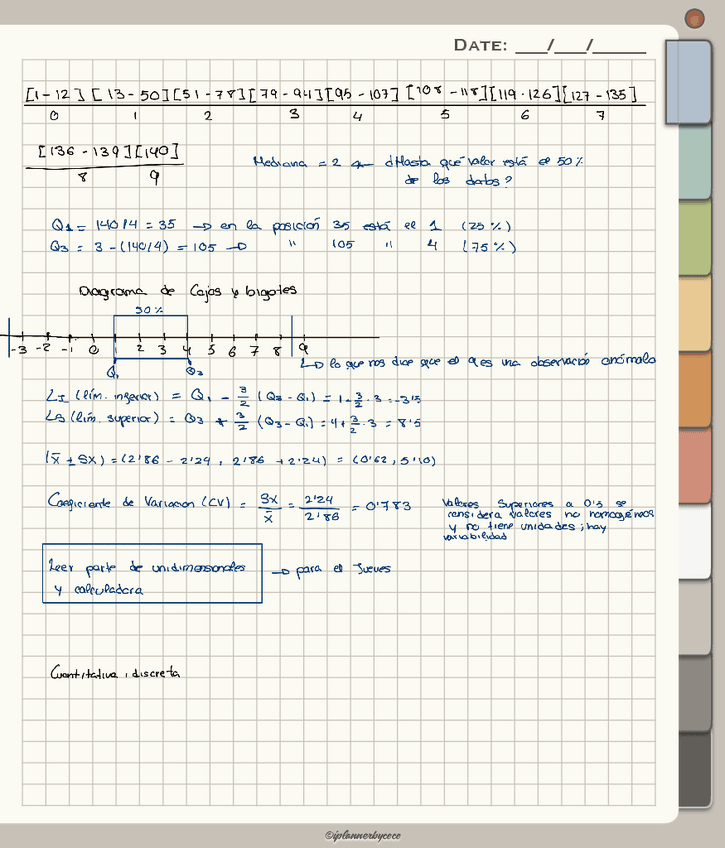 DATE: ___/___/_____
[1-12] [13-50][51-78][79-94][95-107][108-118][119-126][127-135]
0 1 2 3 4 5 6 7
[136-139][140]
8 9
Mediana = 2 ← ¿Hasta qué valor está el 50%
de los datos?
Q1 = 140/4 = 35 → en la posición 35 está el 1 (25%)
Q3 = 3-(140/4) = 105 → " 105 " 4 (75%)
Diagrama de Cajas y bigotes
50%
-3 -2 -1 0 1 2 3 4 5 6 7 8 9
Q1 Q3
↳ lo que nos dice que el 9 es una observació anómala
LI (lím. inferior) = Q1 - 3/2 (Q3-Q1) = 1-3/2·3 = -3'5
LS (lím. superior) = Q3 + 3/2 (Q3-Q1) = 4+3/2·3 = 8'5
(x̄ ± Sx) = (2'86 - 2'24, 2'86 + 2'24) = (0'62, 5'10)
Coeficiente de Variacion (CV) = Sx/x̄ = 2'24/2'86 = 0'783
Valores superiores a 0'5 se
considera valores no homogéneos
y no tiene unidades; hay
variabilidad
Leer parte de unidimensionales
y calculadora
→ para el Jueves
Cuantitativa, discreta
©iplannerbycece